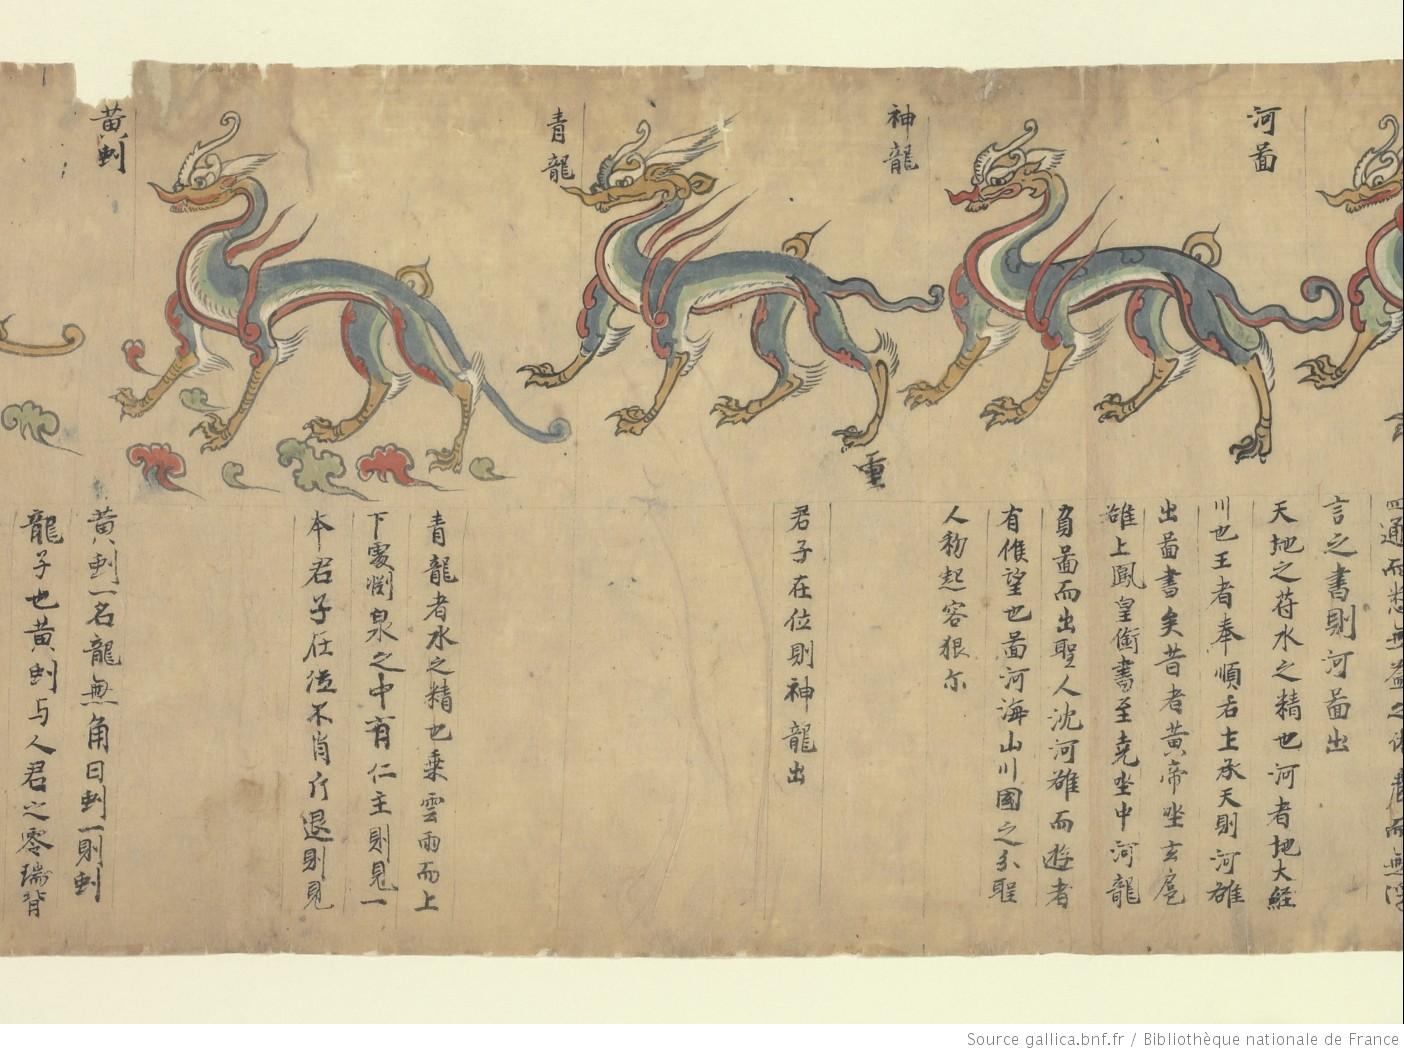 河圖
神龍
青龍
黃虬
四通而愁無益之術廢而無浮
言之書則河圖出
天地之苻水之精也河者地大經
川也王者奉順后土承天則河雒
出圖書矣昔者黃帝坐玄扈
雒上鳳皇銜書至堯坐中河龍
負圖而出聖人沈河雒而遊者
有候望也圖河海山川國之分聖
人初起容狠尔
君子在位則神龍出
重
青龍者水之精也乗雲雨而上
下處渕泉之中有仁主則見一
本君子在位不肖斥退則見
黃虬一名龍無角曰虬一則虬
龍子也黃虬与人君之零瑞背
Source gallica.bnf.fr / Bibliothèque nationale de France